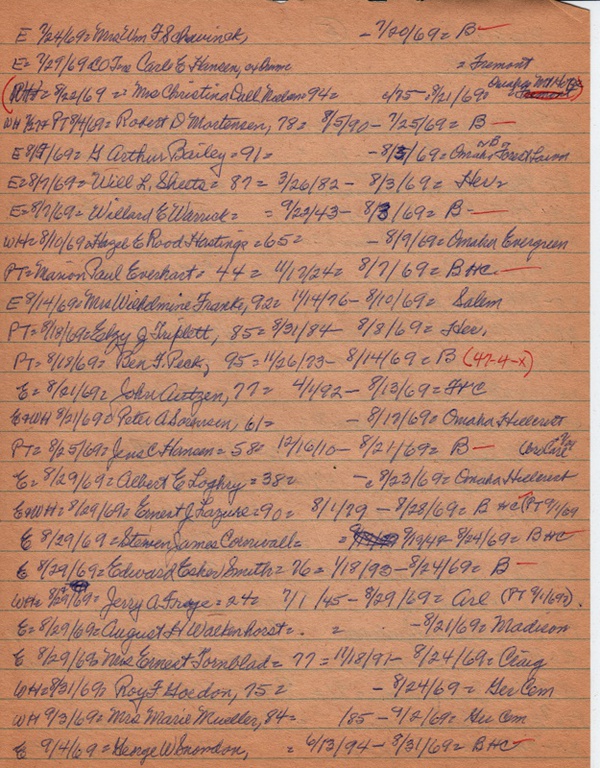 E 7/24/69= Mrs Wm F Schwinck, - 7/20/69= B-
E= 7/29/69 Carl E Hansen, = Fremont
WH= 8/22/69 = Mrs Christina Dall Nielsen= 94= /75 - 8/21/69= Omaha
WH PT 8/4/69= Robert D Mortensen, 78= 8/5/90 - 7/25/69= B-
E 8/5/69= G Arthur Bailey= 91= - 8/3/69= Omaha Forest Lawn
E= 8/7/69= Will L. Sheets= 87= 3/26/82 - 8/3/69= Her=
E= 8/7/69= Willard E Warrick= = 9/22/43 - 8/3/69= B-
WH= 8/10/69= Hazel E Rood Hastings= 65= - 8/9/69= Omaha Evergreen
PT= Marion Paul Everhart= 44= 11/17/24= 8/7/69= B HC-
E 8/14/69= Mrs Wilhelmine Franke, 92= 11/14/76 - 8/10/69= Salem
PT= 8/18/69= Elzy J Triplett, 85= 8/31/84 - 8/8/69= Her.
PT= 8/18/69= Ben F. Peck, 95= 11/26/73 - 8/14/69= B (47-4-X)
E= 8/21/69= John Autzen, 77= 4/1/92 - 8/13/69= HC
E=WH 8/21/69= Peter A Sorensen, 61= - 8/17/69= Omaha Hillcrest
PT= 8/25/69= Jens C Hansen= 58= 12/16/10 - 8/21/69= B-
E= 8/29/69= Albert E Loghry= 38= - 8/23/69= Omaha Hillcrest
E=WH= 8/29/69= Ernest J Lazure= 90= 8/1/79 - 8/28/69= B HC (PT 9/1/69
E 8/29/69= Steven James Cornwall= = 9/19/48- 8/24/69= B HC
E 8/29/69= Edward Esher Smith= 76= 1/18/93 - 8/24/69= B-
WH= 8/29/69= Jerry A Fraze= 24= 7/1/45 - 8/29/69= Arl (PT 9/1/69).
E= 8/29/69= August H Walkenhorst= . = - 8/21/69= Madison
E 8/29/69= Mrs Ernest Tornblad= 77= 11/18/91- 8/24/69= Craig
WH= 8/31/69= Roy F Hoedon, 75= - 8/24/69= Ger Cem
WH 9/3/69= Mrs Marie Mueller, 84= /85 - 9/2/69= Ger Cem
E 9/4/69= George W Snowdon, = 6/13/94 - 8/31/69= B HC